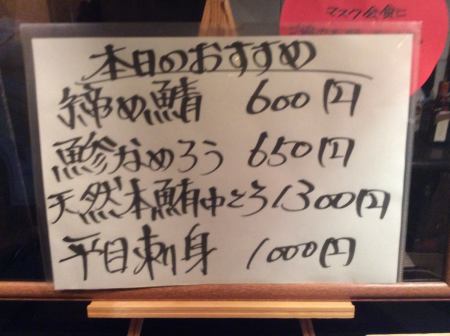 本日のおすすめ
締め鯖 600円
鯵なめろう 650円
天然本鮪中とろ1300円
平目刺身 1000円
マスク会食に